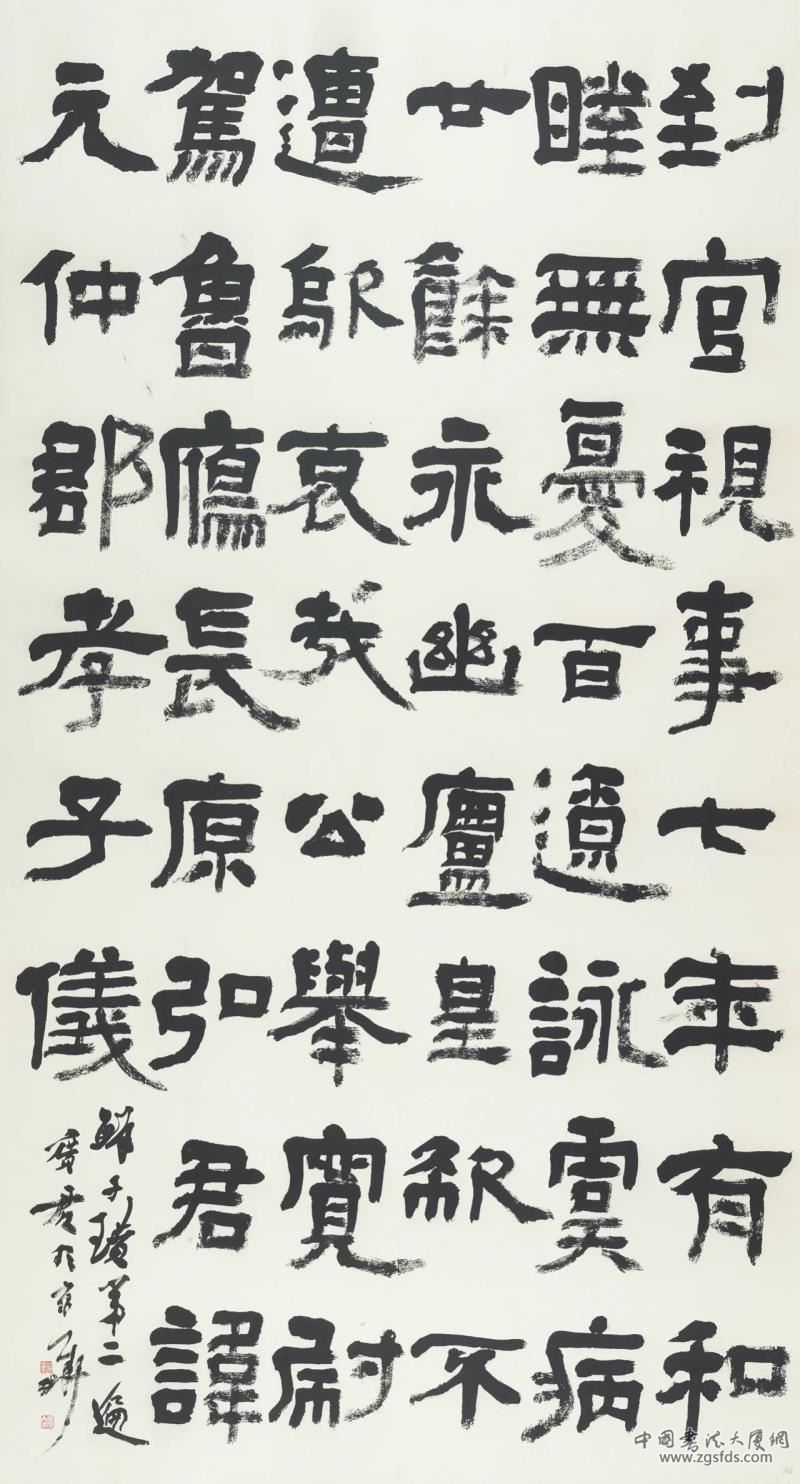 到官視事七年有和
睦無憂百遺詠虞病
廿餘永幽廬皇不
遭鄔哀哉公舉寬尉
駕魯鴈長原弘君諱
元仲郡孝子儀
鮮于璜第二遍
於京華
中國書法大厦網
www.zgsfds.com